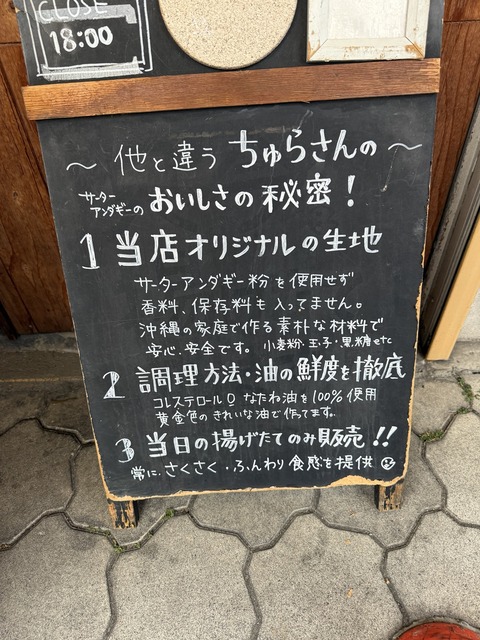 CLOSE
18:00
～ 他と違う ちゅらさんの ～
サーターアンダギーの おいしさの秘密！
1 当店オリジナルの生地
サーターアンダギー粉を使用せず
香料、保存料も入ってません。
沖縄の家庭で作る素朴な材料で
安心.安全です。 小麦粉・玉子・黒糖etc
2 調理方法・油の鮮度を徹底
コレステロール0 なたね油を100%使用
黄金色のきれいな油で作ってます.
3 当日の揚げたてのみ販売!!
常に.さくさく・ふんわり食感を提供